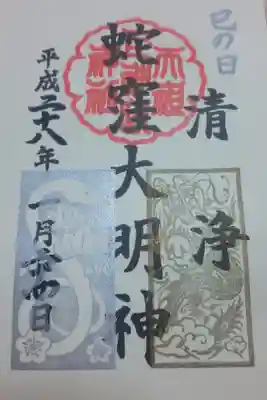 巳の日
清浄
蛇窪大明神
平成二十八年一月二十四日